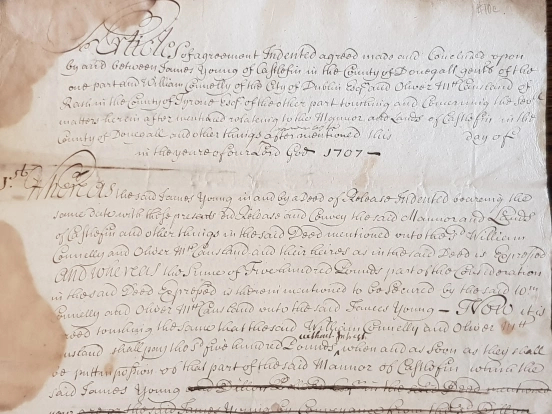 Articles of agreement Indented agreed made and Concluded upon
by and between James Young of Castlefin in the County of Donegall gent of the
one part and William Connelly of the City of Dublin Esqr and Oliver McCausland of
Rash in the County of Tyrone Esqr of the other part touching and Concerning the
matters herein after mentioned relateing to the Mannor and Lands of Castlefin in the
County of Donegall and other things after mentioned this day of
in the yeare of our Lord God 1707
1st Whereas the said James Young in and by a Deed of Release Indented beareing the
same date with these presents did Release and Convey the said Mannor and Lands
of Castlefin and other things in the said Deed mentioned unto the sd William
Connelly and Oliver McCausland and their heires as in the said Deed is Expressed
And Whereas the summe of five hundred Pounds part of the Consideration
in the said Deed Expressed is therein mentioned to be secured by the said Wm
Connelly and Oliver McCausland unto the said James Young – Now it is
agreed touching the same that the said William Connelly and Oliver Mc
Causland shall pay the sd five hundred Pounds without Interest when and as soon as they shall
be putt in possession of that part of the said Mannor of Castlefin which the
said James Young